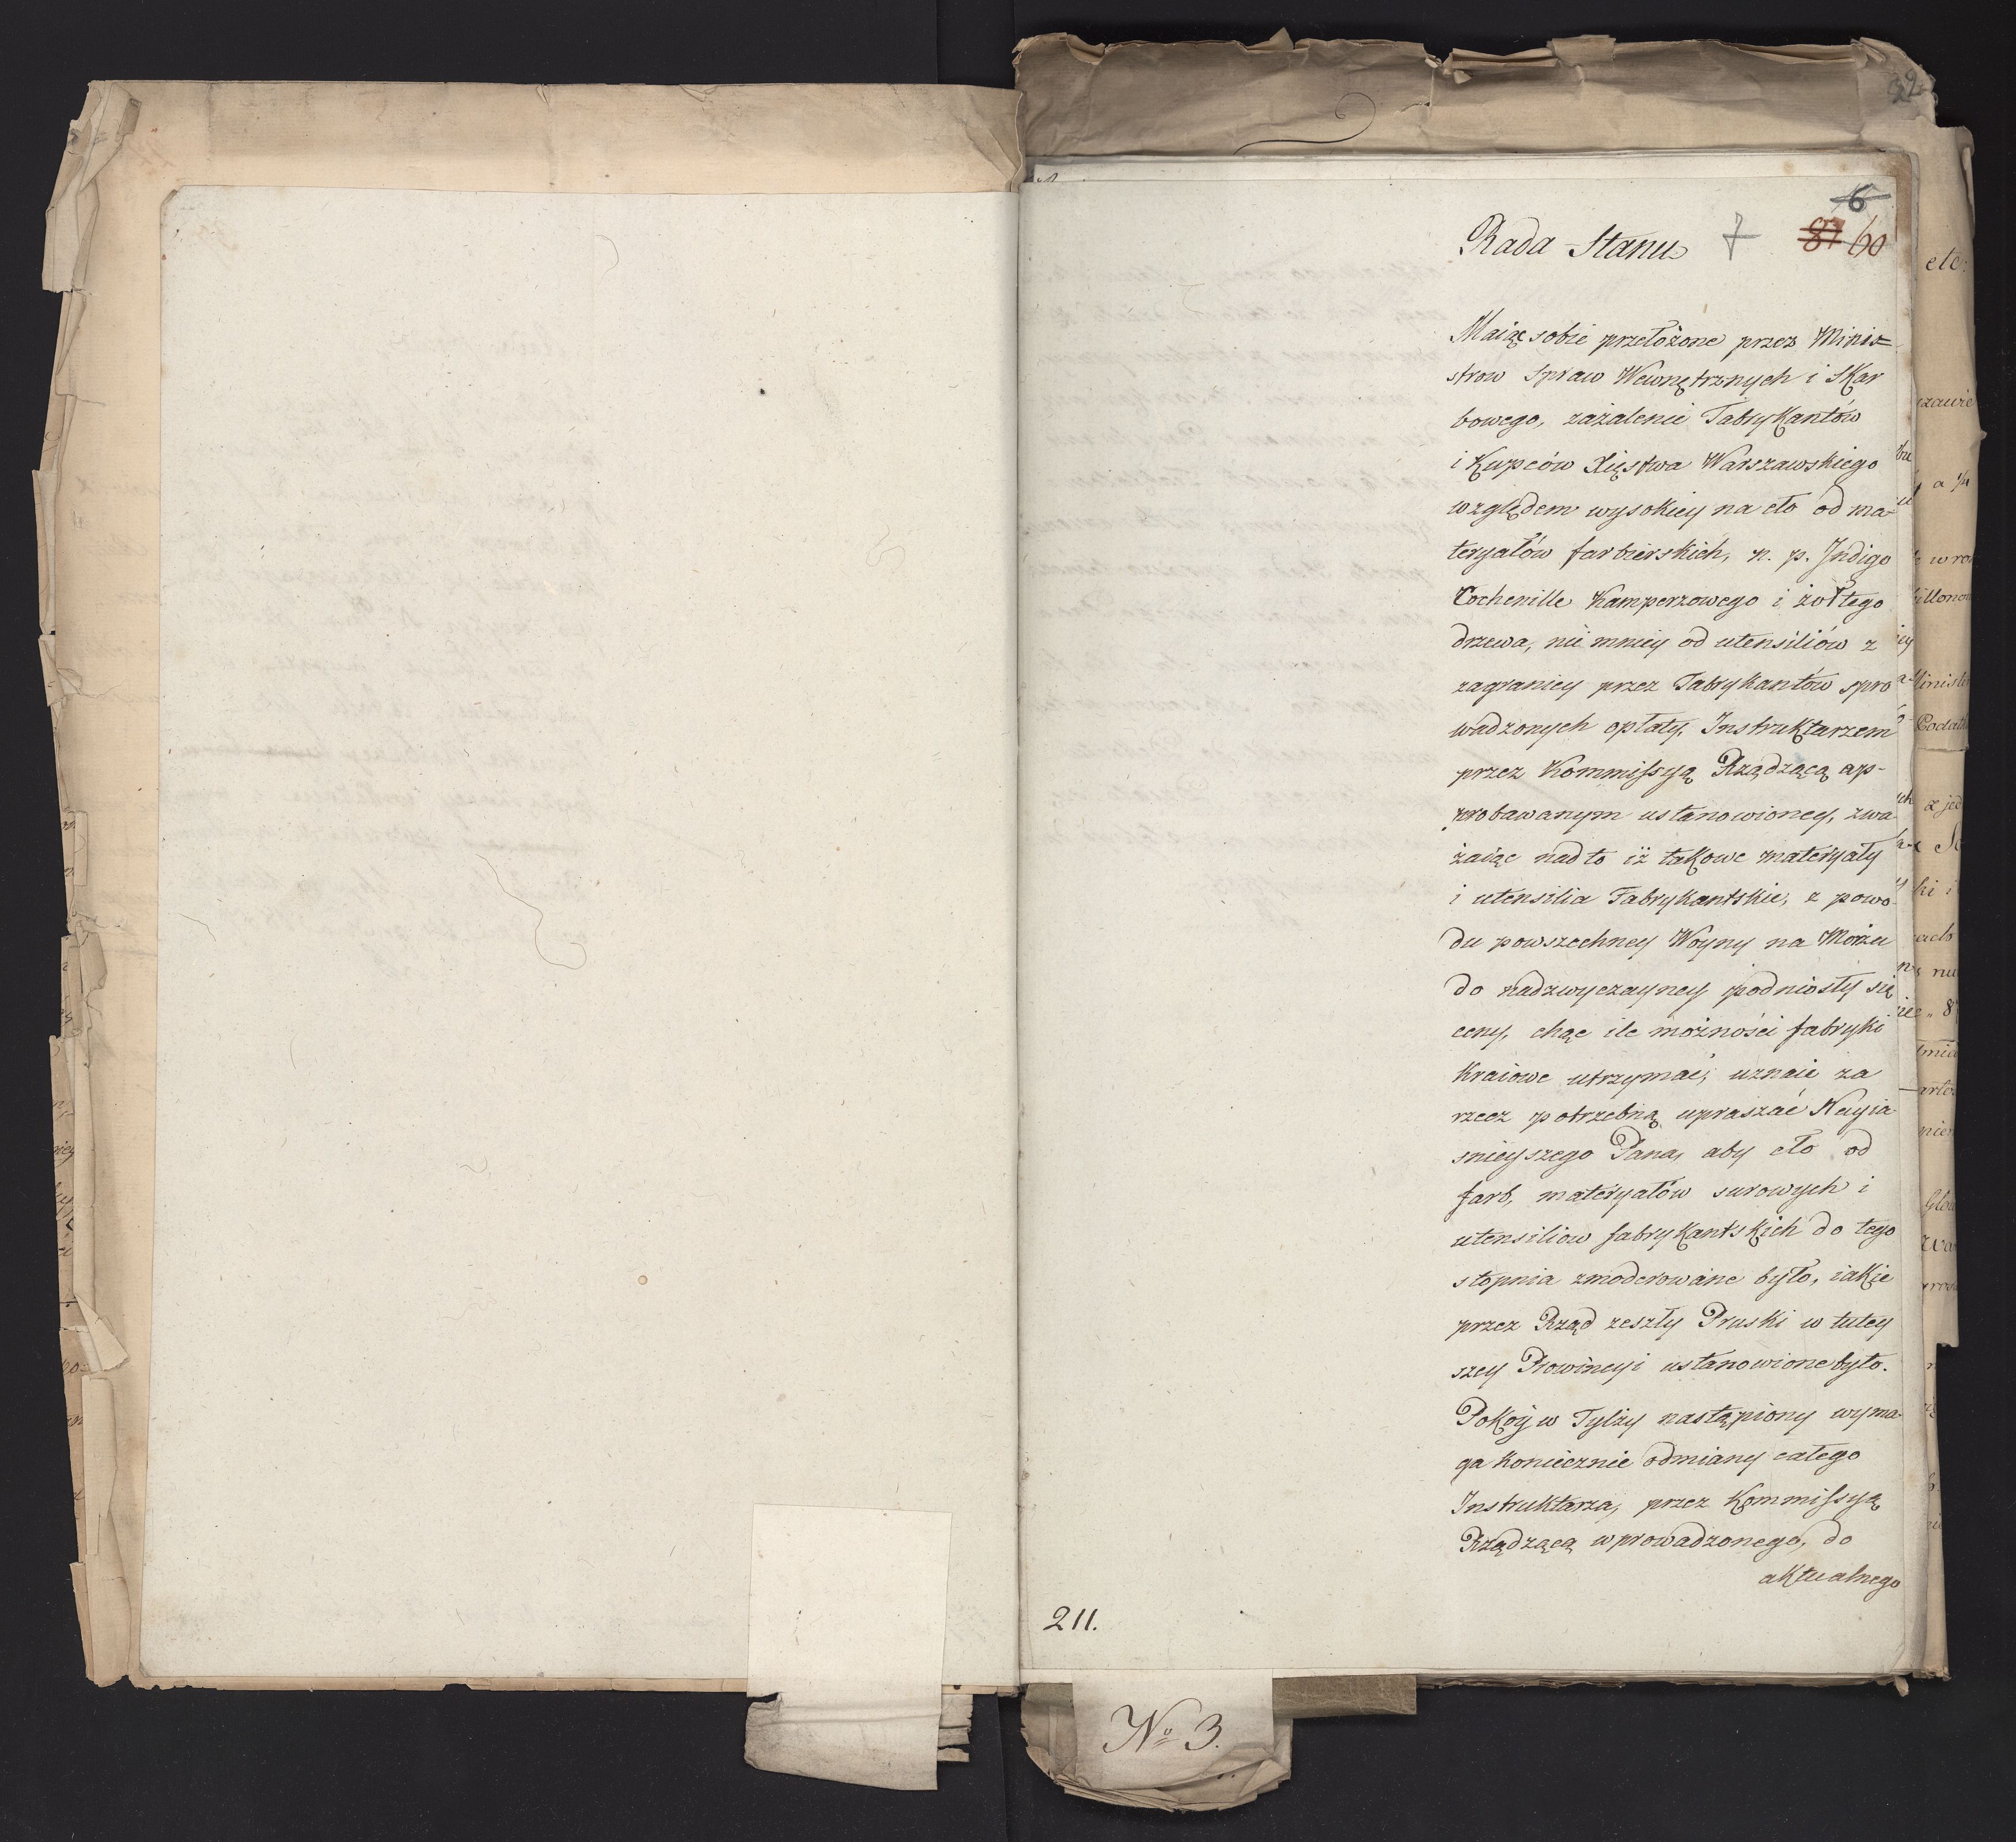 6
Rada Stanu 7 87 60
Maiąc sobie przełożone przez Mini=
strow Spraw Wewnętrznych i Skar
bowego, zażalenie Fabrykantów
i Kupców Xięstwa Warszawskiego
względem wysokiey na cło od ma-
teryałów farbierskich, n. p. Indigo
Cochenille Kamperzowego i żółtego
drzewa, nie mniey od utensiliów z
zagranicy przez Fabrykantów spro
wadzonych opłaty, Instruktarzem
przez Kommissyą Rządzącą ap-
probawanym ustanowioney, zwa
żaiąc nad to iż takowe materyały
i utensilia Fabrykantskie, z powo
du powszechney Woyny na Morzu
do nadzwyczayney podniosły się
ceny, chcąc ile możności fabryki
Kraiowe utrzymać, uznaie za
rzecz potrzebną upraszać Nayia
śnieyszego Pana, aby cło od
farb, materyałów surowych i
utensiliow fabrykantskich do tego
stopnia zmoderowane było, iakie
przez Rząd zeszły Pruski w tutey
szey Prowincyi ustanowione było.
Pokoy w Tylży nastąpiony wyma-
ga koniecznie odmiany całego
Instruktarza, przez Kommissyą
Rządzącą wprowadzonego, do
aktualnego
211.
No 3.